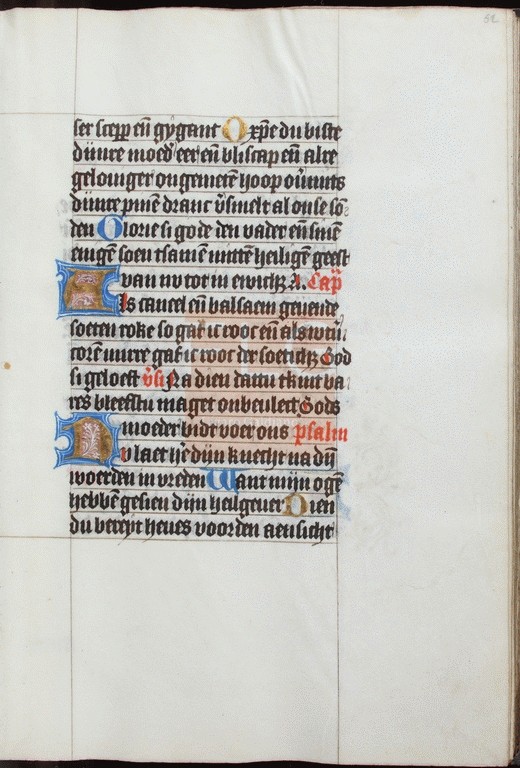 52
ser scepp en̄ gygant O xp̄e du biste
dūnre moed' eer en̄ bliscap en̄ alre
geloniger ongemetē hoop oūmits
dūnre pinē dranc v̄smelt al onse sō
den Glorie si gode den vader en̄ sinē
enigē soen tsamen mittē heiligē geest
van nv tot in ewichz A. Cap̄
Als caneel en̄ balsaem geuende
soeten roke so gaf ic rooc en̄ als wtū
corē mirre gaf ic roor der soetichz God
si geloeft v̄si Na dien dattu tkint ba
res bleefstu maget onbeulect Gods
moeder bidt voer ons psalm
Nv laet hē dijn knecht na dij̄
woerden in vreden Want mijn ogē
hebbē gesien dijn heilgeuer Dien
du bereyt heues voor den aensicht